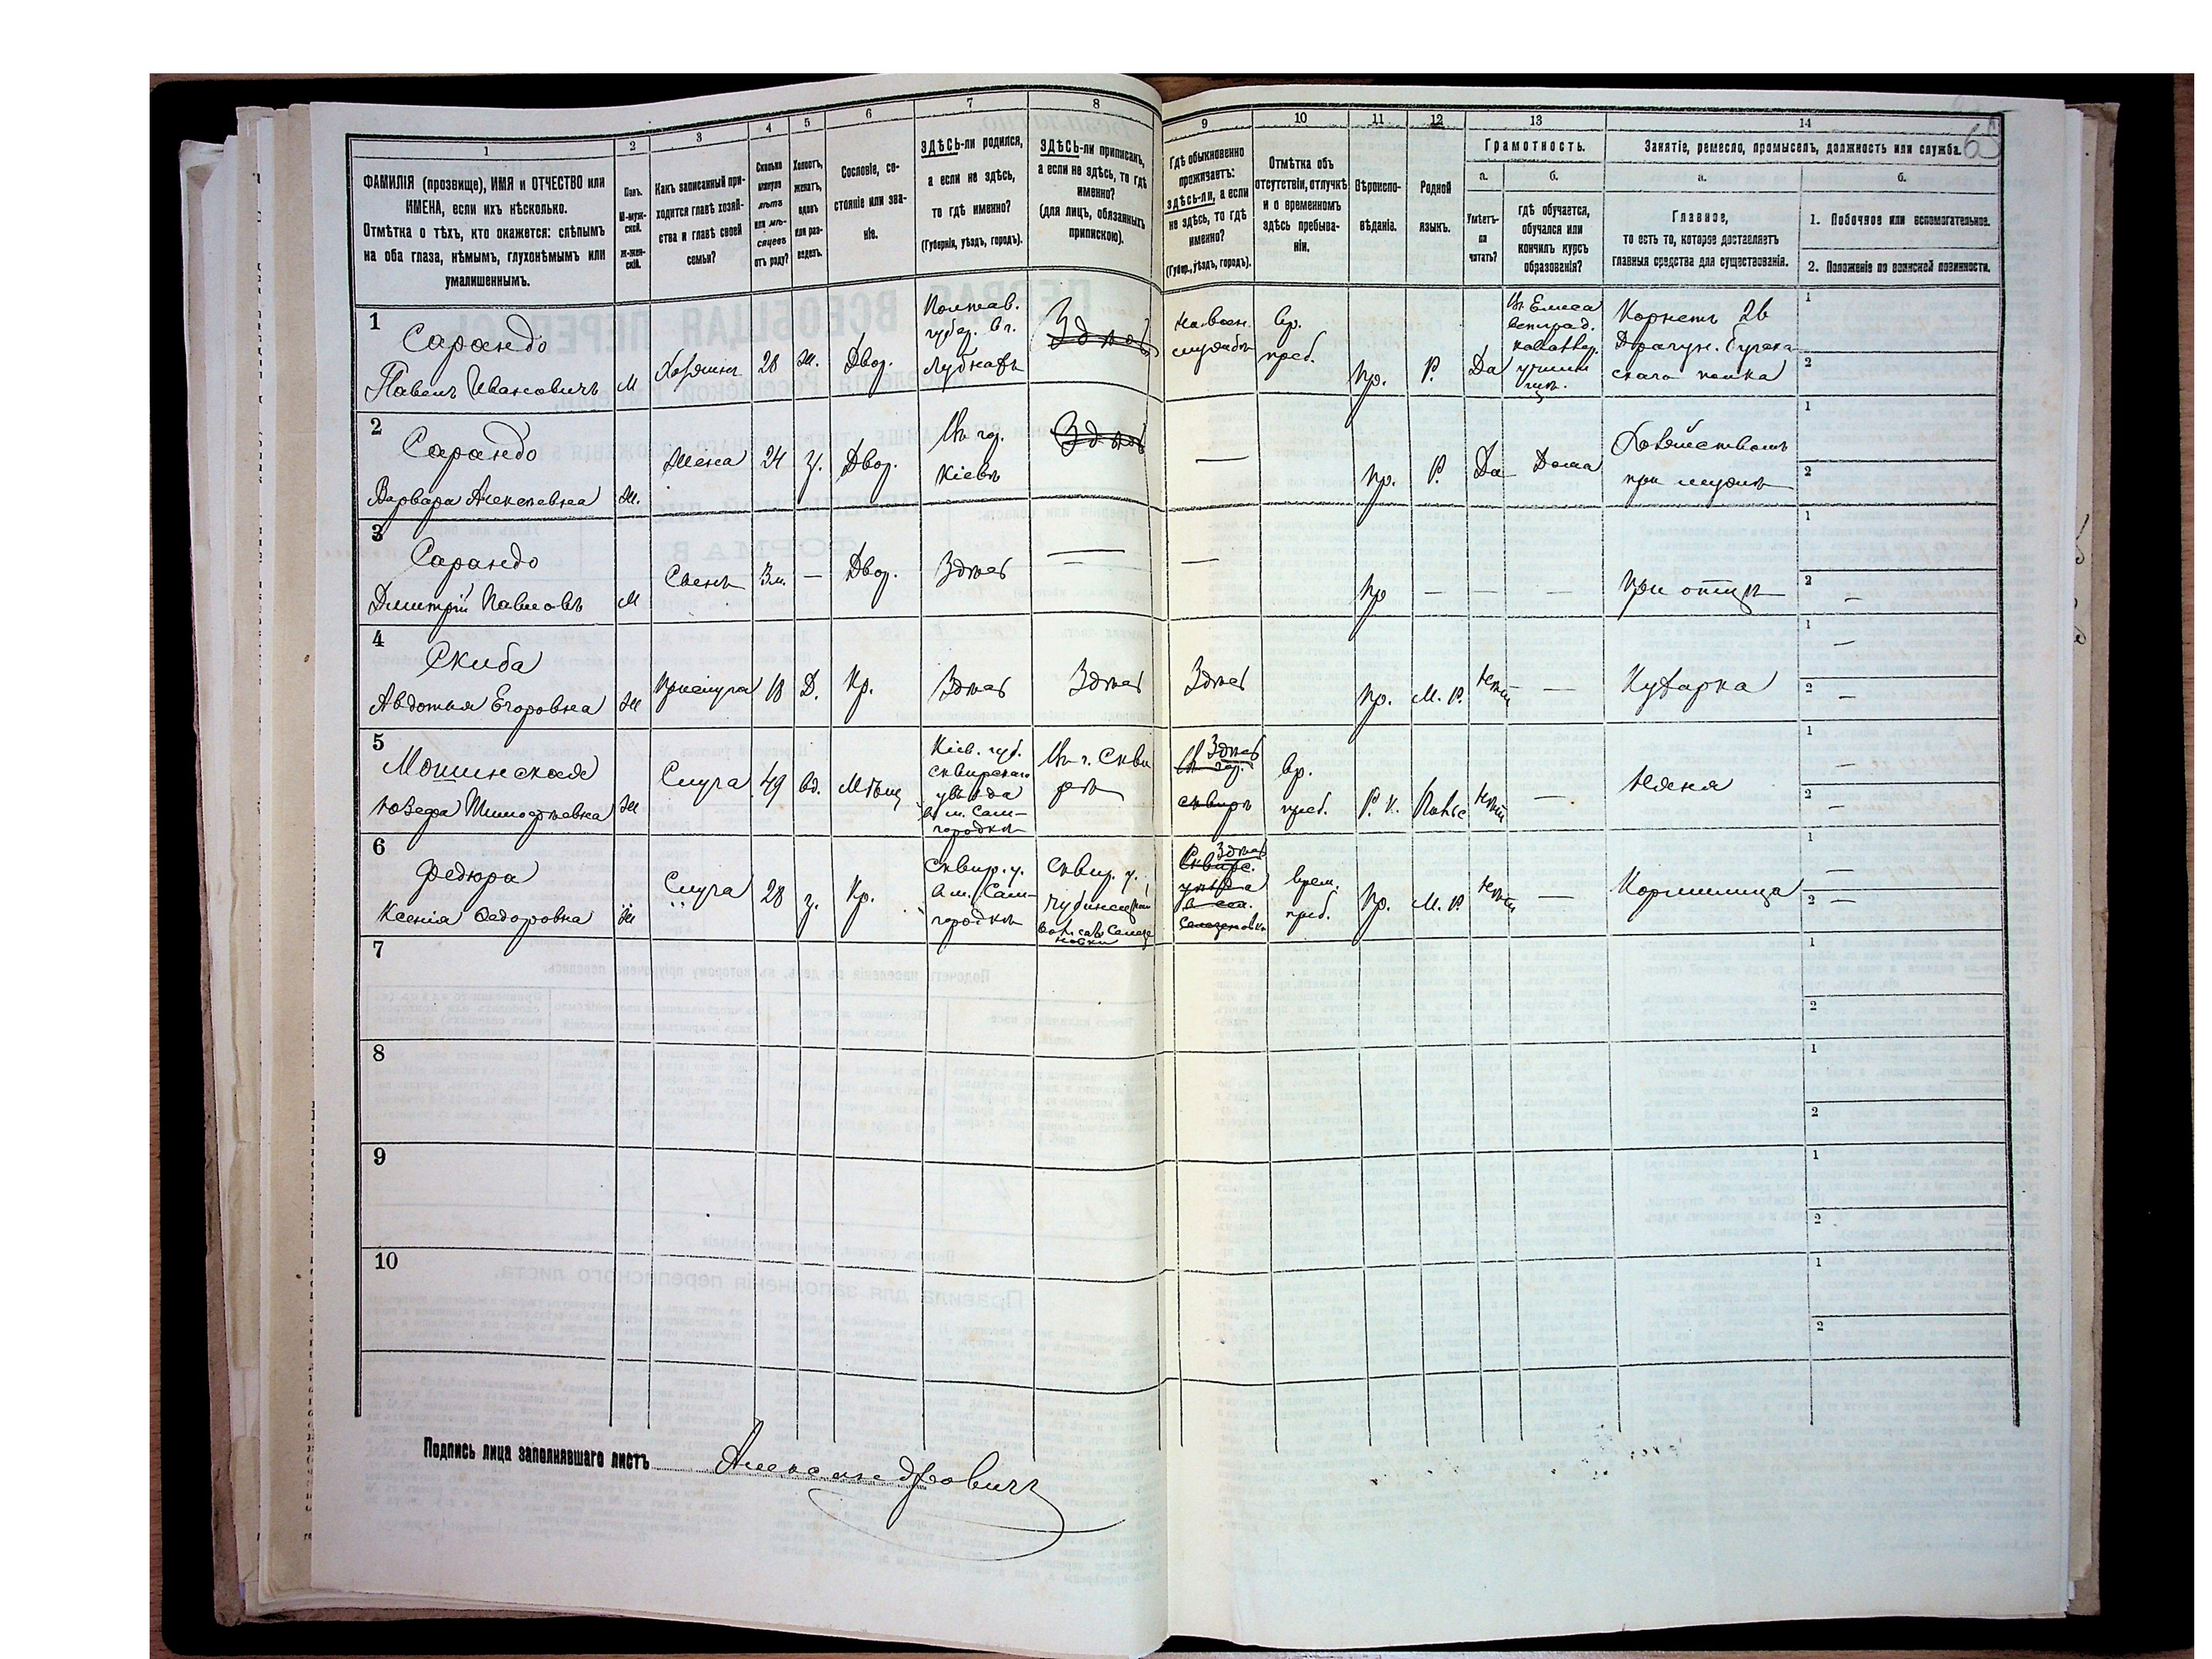 1
2
3
4
5
6
7
8
ФАМИЛІЯ (прозвище), ИМЯ и ОТЧЕСТВО или
ИМЕНА, если ихъ нѣсколько.
Отмѣтка о тѣхъ, кто окажется: слѣпымъ
на оба глаза, нѣмымъ, глухонѣмымъ или
умалишеннымъ.
Полъ.
М-муж-
ской.
Ж-жен-
скій.
Какъ записанный при-
ходится главѣ хозяй-
ства и главѣ своей
семьи?
Сколько
минуло
лѣтъ
или мѣ-
сяцевъ
отъ роду?
Холостъ,
женатъ,
вдовъ
или раз-
веденъ.
Сословіе, со-
стояніе или зва-
ніе.
ЗДѢСЬ-ли родился,
а если не здѣсь,
то гдѣ именно?
(Губернія, уѣздъ, городъ).
ЗДѢСЬ-ли приписанъ,
а если не здѣсь, то гдѣ
именно?
(для лицъ, обязанныхъ
припискою).
9
10
11
12
13
14
65
Гдѣ обыкновенно
проживаетъ:
здѣсь-ли, а если
не здѣсь, то гдѣ
именно?
(Губер., уѣздъ, городъ).
Отмѣтка объ
отсутствіи, отлучкѣ
и о временномъ
здѣсь пребыва-
ніи.
Вѣроиспо-
вѣданіе.
Родной
языкъ.
Грамотность.
а.
Умѣетъ-
ли
читать?
б.
гдѣ обучается,
обучался или
кончилъ курсъ
образованія?
Занятіе, ремесло, промыселъ, должность или служба.
а.
Главное,
то есть то, которое доставляетъ
главныя средства для существованія.
б.
1. Побочное или вспомогательное.
2. Положеніе по воинской повинности.
1
Сарандо
Павелъ Ивановичъ
М
Хозяинъ
28
Ж.
Двор.
Полтав.
губер. в г.
Лубнахъ
Здѣсь
На воен.
службѣ
Вр.
преб.
Пр.
Р.
Да
Въ Елиса
ветград.
кавалер.
училищѣ
Корнетъ 26
Драгун. Бугска
скаго полка
1
2
2
Сарандо
Варвара Алексѣевна
Ж.
Жена
24
З.
Двор.
Въ гор.
Кіевѣ
Здѣсь
—
Пр.
Р.
Да
Дома
Хозяйствомъ
при мужѣ
1
2
3
Сарандо
Дмитрій Павловъ
М
Сынъ
3 м.
—
Двор.
Здѣсь
—
—
Пр
—
—
—
При отцѣ
1
2
—
4
Скиба
Авдотья Егоровна
Ж
Прислуга
18
Д.
Кр.
Здѣсь
Здѣсь
Здѣсь
Пр.
М. Р.
Нѣтъ
—
Кухарка
1
—
2
—
5
Мошинская
Юзефа Тимофѣевна
Ж
Слуга
49
вд.
Мѣщ
Кіев. губ.
Сквирскаго
уѣзда
в м. Сам-
городкѣ
Въ г. Скви
рѣ
Здѣсь
Въ гор.
Сквирѣ
Вр.
преб.
Р. К.
Польс
Нѣтъ
—
Няня
1
—
2
—
6
Федюра
Ксенія Федоровна
Ж
Слуга
28
З.
Кр.
Сквир. у.
в м. Сам-
городкѣ
Сквир. у.
Чубинецкой
вол. село Селезе
новки
Здѣсь
Сквирс.
уѣзда
в сел.
Селезеновкѣ
Врем.
преб.
Пр.
М. Р.
Нѣтъ
—
Кормилица
1
—
2
—
7
1
2
8
1
2
9
1
2
10
1
2
Подпись лица заполнявшаго листъ
Александровичъ